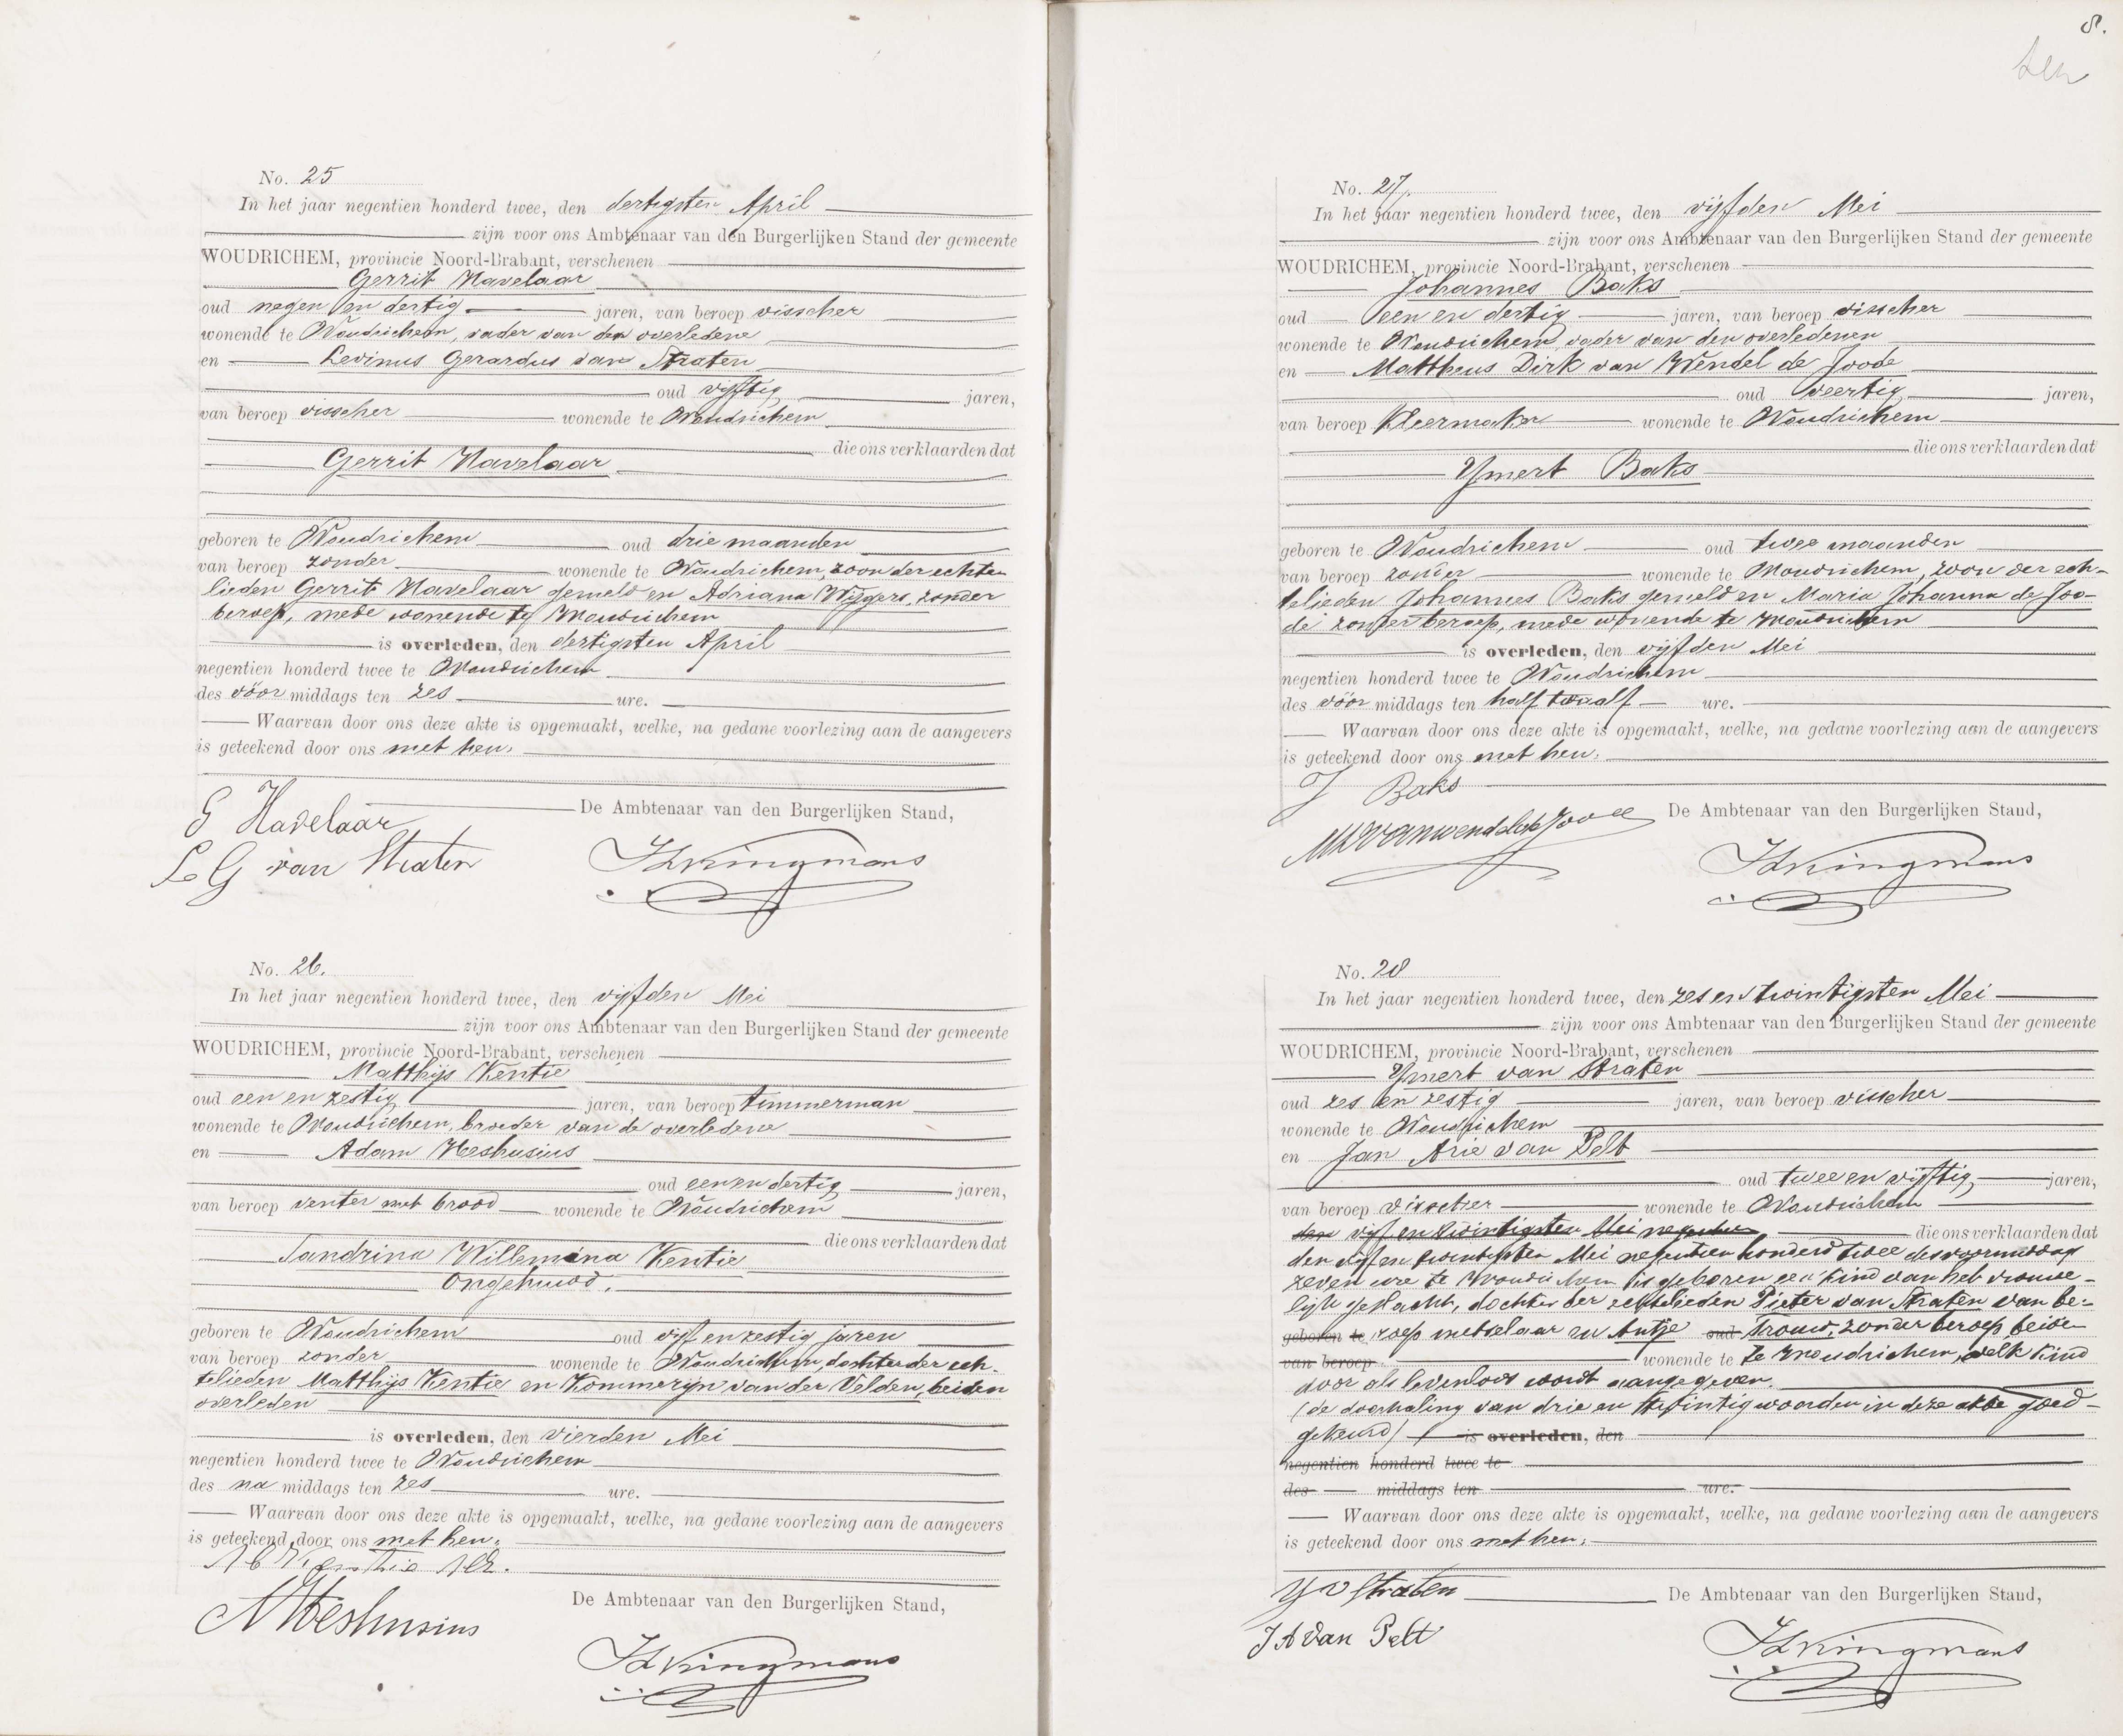 No. 25
In het jaar negentien honderd twee, den dertigsten April
zijn voor ons Ambtenaar van den Burgerlijken Stand der gemeente
WOUDRICHEM, provincie Noord-Brabant, verschenen
Gerrit Havelaar
oud negen en dertig jaren, van beroep visscher
wonende te Woudrichem, vader van den overledene
en Levinus Gerardus van Straten
oud vijftig jaren,
van beroep visscher wonende te Woudrichem
die ons verklaarden dat
Gerrit Havelaar
geboren te Woudrichem oud drie maanden
van beroep zonder wonende te Woudrichem, zoon der echte-
lieden Gerrit Havelaar gemeld en Adriana Wiggers, zonder
beroep, mede wonende te Woudrichem
is overleden, den dertigsten April
negentien honderd twee te Woudrichem
des vóór middags ten zes ure.
Waarvan door ons deze akte is opgemaakt, welke, na gedane voorlezing aan de aangevers
is geteekend door ons met hen.
G Havelaar
De Ambtenaar van den Burgerlijken Stand,
L G van Straten
No. 26.
In het jaar negentien honderd twee, den vijfden Mei
zijn voor ons Ambtenaar van den Burgerlijken Stand der gemeente
WOUDRICHEM, provincie Noord-Brabant, verschenen
Matthijs Kentie
oud een en zestig jaren, van beroep timmerman
wonende te Woudrichem, broeder van de overledene
en Adam Heshusius
oud een en dertig jaren,
van beroep venter met brood wonende te Woudrichem
die ons verklaarden dat
Tandrina Willemina Kentie
Ongehuwd.
geboren te Woudrichem oud vijf en zestig jaren
van beroep zonder wonende te Woudrichem, dochter der ech-
telieden Matthijs Kentie en Kommerijn van der Velden, beiden
overleden
is overleden, den vierden Mei
negentien honderd twee te Woudrichem
des na middags ten zes ure.
Waarvan door ons deze akte is opgemaakt, welke, na gedane voorlezing aan de aangevers
is geteekend door ons met hen.
De Ambtenaar van den Burgerlijken Stand,
A Heshusius
8.
No. 27.
In het jaar negentien honderd twee, den vijfden Mei
zijn voor ons Ambtenaar van den Burgerlijken Stand der gemeente
WOUDRICHEM, provincie Noord-Brabant, verschenen
Johannes Baks
oud een en dertig jaren, van beroep visscher
wonende te Woudrichem, vader van den overledenen
en Mattheus Dirk van Wendel de Joode
oud veertig jaren,
van beroep kleermaker wonende te Woudrichem
die ons verklaarden dat
Ymert Baks
geboren te Woudrichem oud twee maanden
van beroep zonder wonende te Woudrichem, zoon der ech-
telieden Johannes Baks gemeld en Maria Johanna de Joo-
de zonder beroep, mede wonende te Woudrichem
is overleden, den vijfden Mei
negentien honderd twee te Woudrichem
des vóór middags ten half twaalf ure.
Waarvan door ons deze akte is opgemaakt, welke, na gedane voorlezing aan de aangevers
is geteekend door ons met hen.
J Baks
De Ambtenaar van den Burgerlijken Stand,
No. 28
In het jaar negentien honderd twee, den zes en twintigsten Mei
zijn voor ons Ambtenaar van den Burgerlijken Stand der gemeente
WOUDRICHEM, provincie Noord-Brabant, verschenen
Ymert van Straten
oud zes en zestig jaren, van beroep visscher
wonende te Woudrichem
en Jan Arie van Pelt
oud twee en vijftig jaren,
van beroep visscher wonende te Woudrichem
den vijf en twintigsten Mei negentien die ons verklaarden dat
den vijf en twintigsten Mei negentien honderd twee des voormiddags
zeven ure te Woudrichem is geboren een kind van het vrouwe-
lijk geslacht, dochter der echtelieden Pieter van Straten van be-
geboren te roep metselaar en Antje oud Trouw, zonder beroep, beide
van beroep wonende te te Woudrichem, welk kind
door als levenloos wordt aangegeven.
(de doorhaling van drie en twintig woorden in deze akte goed-
gekeurd) is overleden, den
negentien honderd twee te
des middags ten ure.
Waarvan door ons deze akte is opgemaakt, welke, na gedane voorlezing aan de aangevers
is geteekend door ons met hen.
Y v Straten
De Ambtenaar van den Burgerlijken Stand,
J A van Pelt